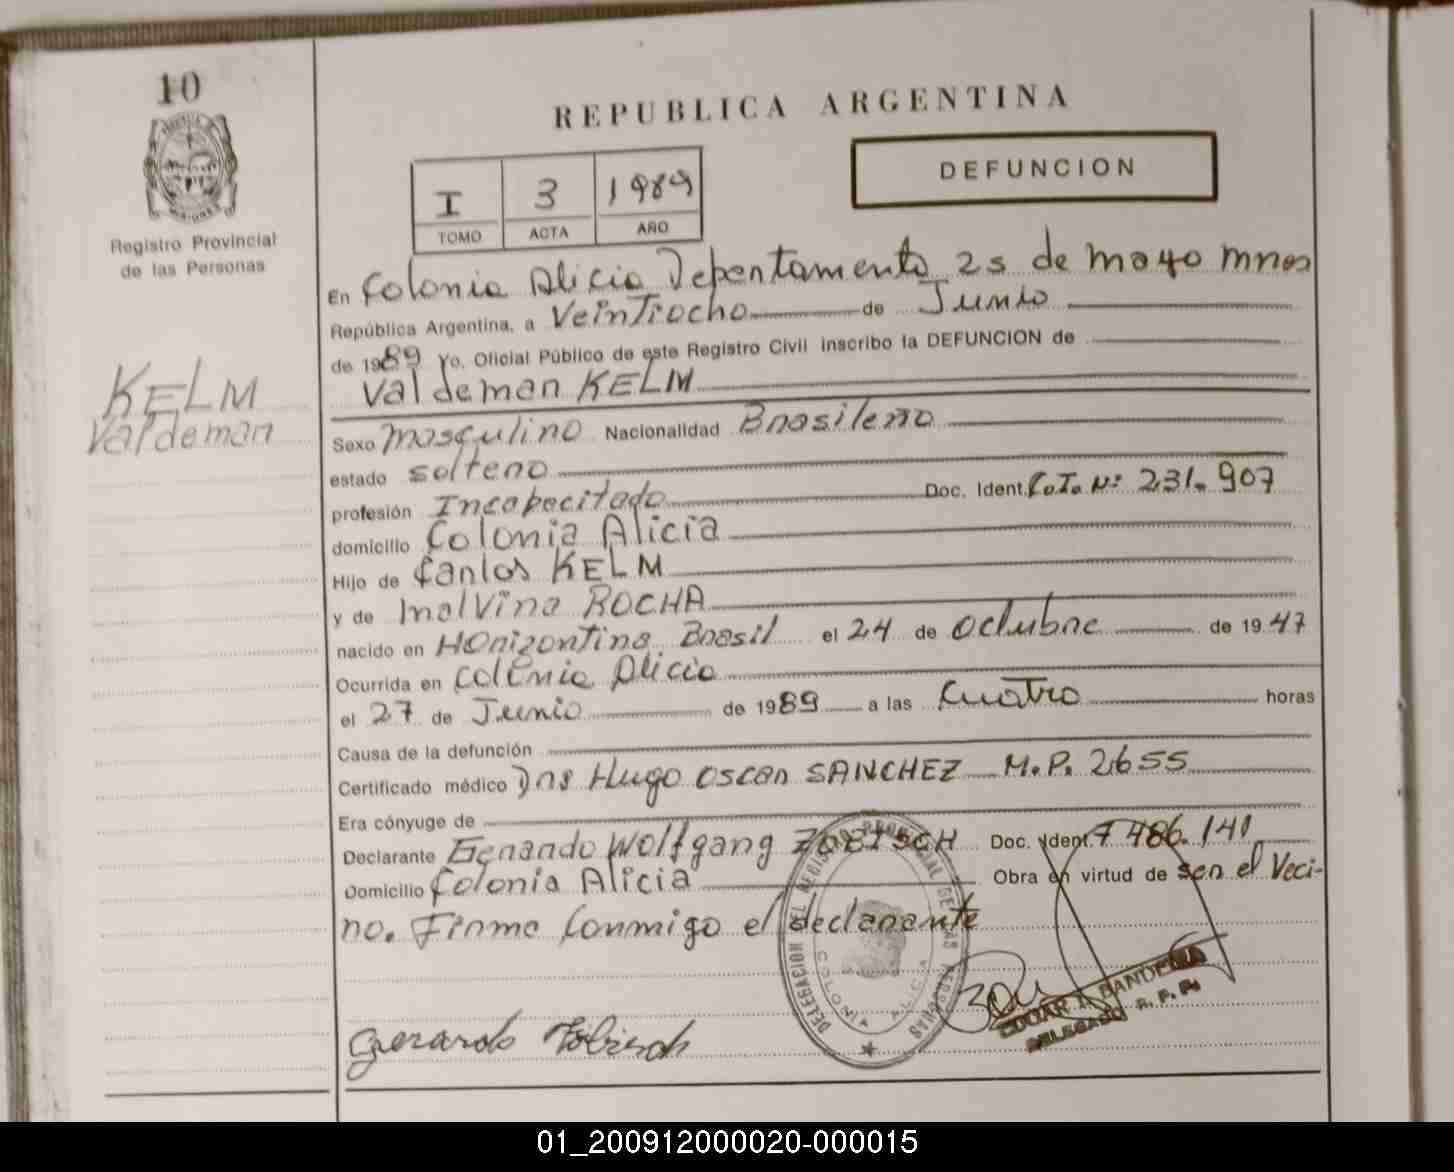 10
REPUBLICA ARGENTINA
DEFUNCION
I 3 1989
TOMO ACTA AÑO
Registro Provincial
de las Personas
En Colonia Alicia Departamento 25 de mayo mnes
República Argentina, a Veintiocho de Junio
de 1989 Yo, Oficial Público de este Registro Civil inscribo la DEFUNCION de
Valdemar KELM
KELM
Valdemar
Sexo masculino Nacionalidad Brasileño
estado soltero
profesión Incapacitado Doc. Ident. C.I. Nº 231.907
domicilio Colonia Alicia
Hijo de Carlos KELM
y de Malvina ROCHA
nacido en Horizontina Brasil el 24 de Octubre de 1947
Ocurrida en Colonia Alicia
el 27 de Junio de 1989 a las Cuatro horas
Causa de la defunción
Certificado médico Drs Hugo Oscar SANCHEZ M.P. 2655
Era cónyuge de
Declarante Gerardo Wolfgang ZOBISCH Doc. Ident. 7.486.141
Domicilio Colonia Alicia Obra en virtud de ser el Veci-
no. Firma Conmigo el declarante
DELEGACION DEL REGISTRO PROVINCIAL DE LAS PERSONAS
COLONIA ALICIA
DELEGADO R. P. P.
Gerardo Zobisch
01_200912000020-000015